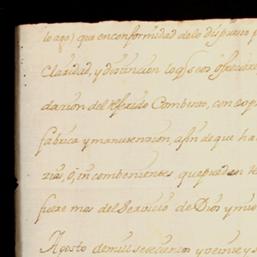 lo ago) que en conformidad de lo dispuesto p
Claridad, y distincion lo q̃ se os ofreciere
darion del referido Combento, con expr
fabrica y manutencion, afin de que ha
rias, o, incombenientes, que puedan
fuere mas del Servicio de Dios y mio
Agosto de mil setecientos y veinte y s